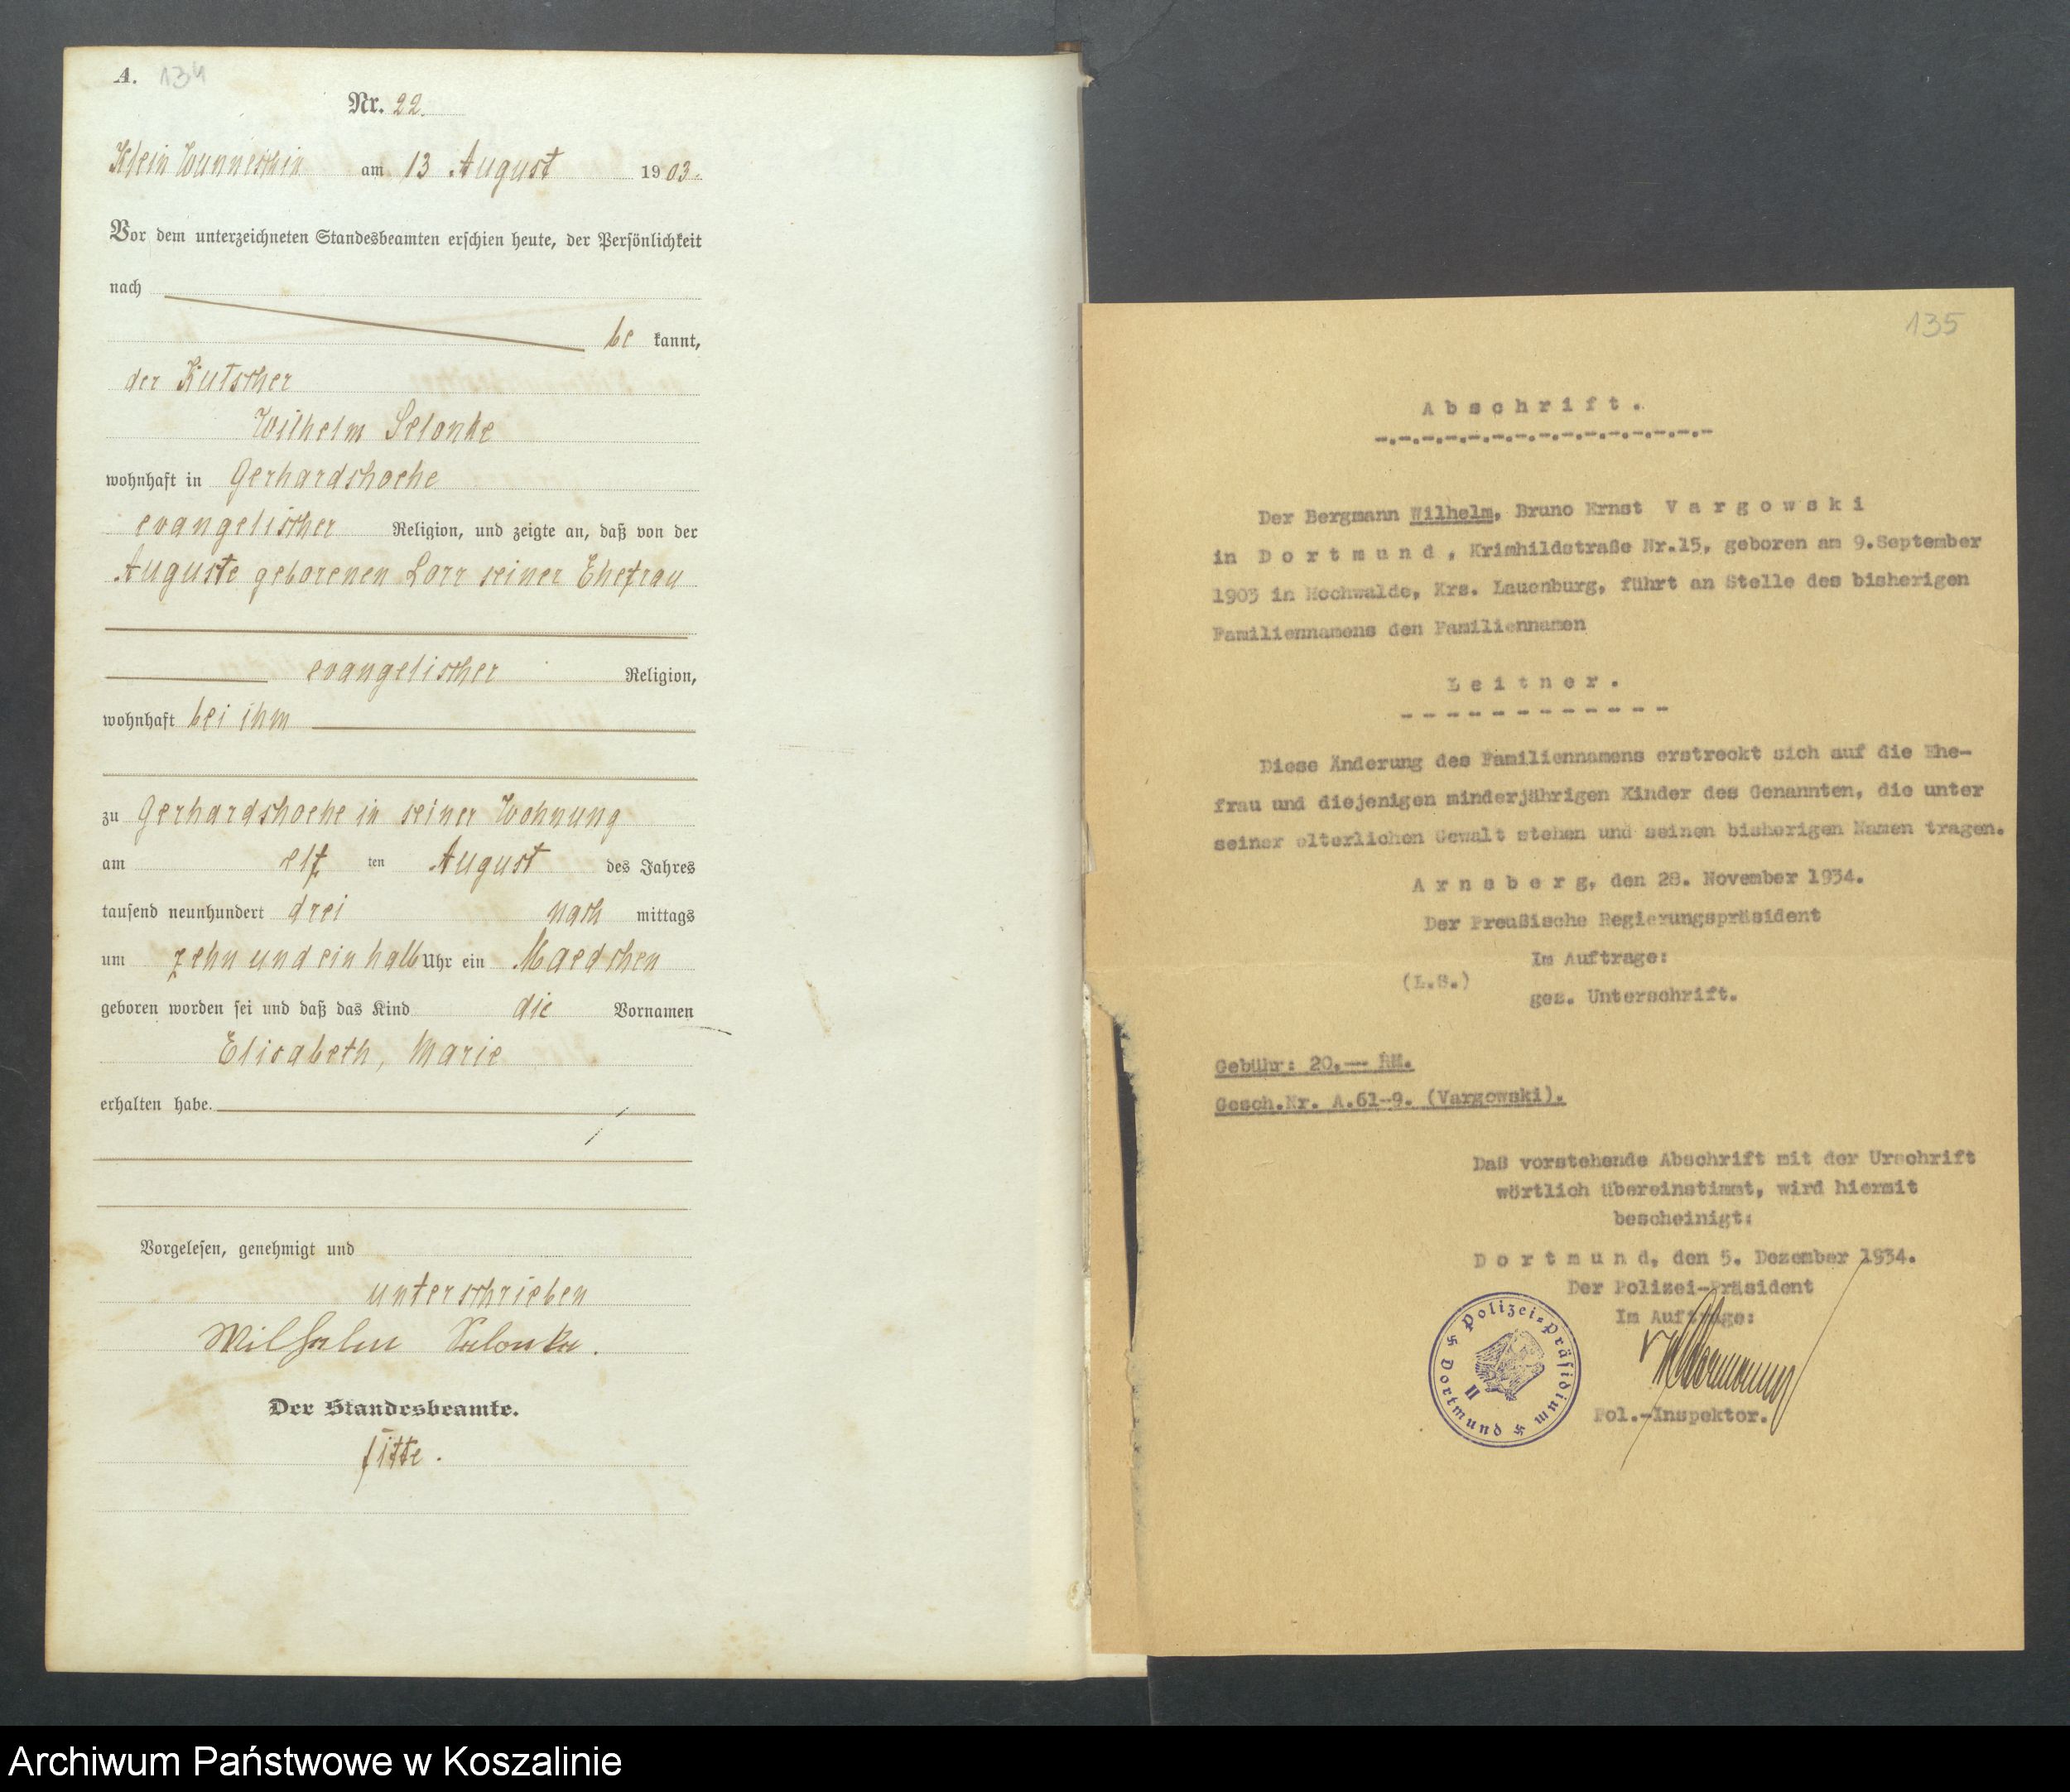 A. 134
Nr. 22.
Klein Wunneschin am 13 August 1903.
Vor dem unterzeichneten Standesbeamten erschien heute, der Persönlichkeit
nach
be kannt,
der Kutscher
Wilhelm Selonke
wohnhaft in Gerhardshoehe
evangelischer Religion, und zeigte an, daß von der
Auguste geborenen Lorr seiner Ehefrau
evangelischer Religion,
wohnhaft bei ihm
zu Gerhardshoehe in seiner Wohnung
am elf ten August des Jahres
tausend neunhundert drei nach mittags
um zehn und ein halb Uhr ein Maedchen
geboren worden sei und daß das Kind die Vornamen
Elisabeth, Marie
erhalten habe.
Vorgelesen, genehmigt und
unterschrieben
Wilhelm Selonke.
Der Standesbeamte.
135
Abschrift.
Der Bergmann Wilhelm, Bruno Ernst Vargowski
in Dortmund, Krimhildstraße Nr.15, geboren am 9.September
1903 in Hochwalde, Krs. Lauenburg, führt an Stelle des bisherigen
Familiennamens den Familiennamen
Leitner.
Diese Änderung des Familiennamens erstreckt sich auf die Ehe-
frau und diejenigen minderjährigen Kinder des Genannten, die unter
seiner elterlichen Gewalt stehen und seinen bisherigen Namen tragen.
Arnsberg, den 28. November 1934.
Der Preußische Regierungspräsident
Im Auftrage:
(L.S.)
gez. Unterschrift.
Gebühr: 20.-- RM.
Gesch.Nr. A.61-9. (Vargowski).
Daß vorstehende Abschrift mit der Urschrift
wörtlich übereinstimmt, wird hiermit
bescheinigt:
Dortmund, den 5. Dezember 1934.
Der Polizei-Präsident
Im Auftrage:
Polizei-Präsidium Dortmund
II
Pol.-Inspektor.
Archiwum Państwowe w Koszalinie